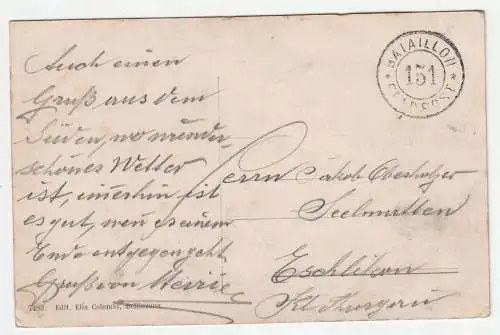 Auch einen
Gruß aus dem
Süden, wo wunder-
schönes Wetter
ist, immerhin ist
es gut, wen es einem
Ende entgegengeht
Gruss von
BATAILLON
151
FELDPOST
Herrn Jakob Oberholzer
Seelmatten
Eschlikon
Kt. Turgau
Edit. Elia Colombi, Bellinzona